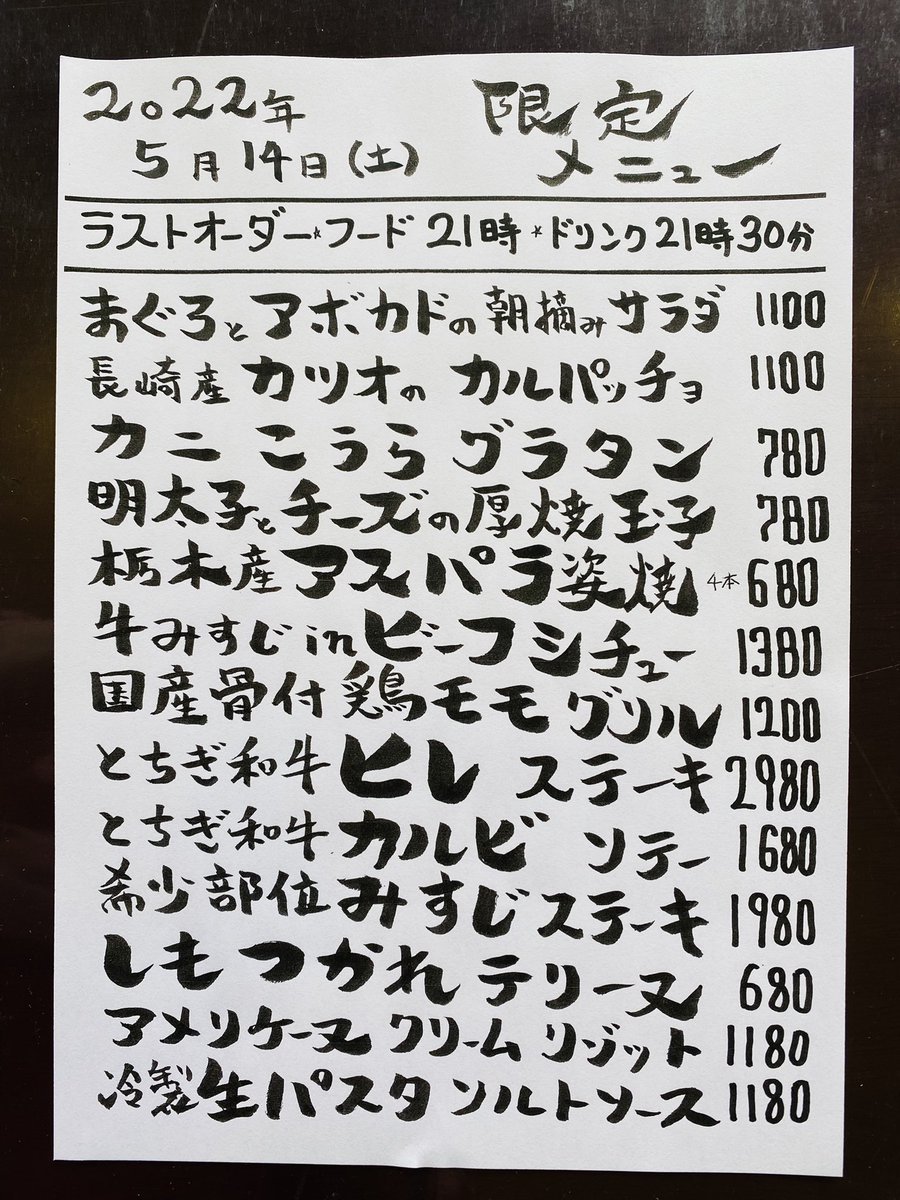 2022年
5月14日(土)
限定
メニュー
ラストオーダー*フード 21時 * ドリンク 21時30分
まぐろとアボカドの朝摘みサラダ 1100
長崎産カツオのカルパッチョ 1100
カニこうらグラタン 780
明太子とチーズの厚焼玉子 780
栃木産アスパラ姿焼 4本 680
牛みすじinビーフシチュー 1380
国産骨付鶏モモグリル 1200
とちぎ和牛ヒレステーキ 2980
とちぎ和牛カルビソテー 1680
希少部位みすじステーキ 1980
しもつかれテリーヌ 680
アメリケーヌクリームリゾット 1180
冷製生パスタソルトソース 1180